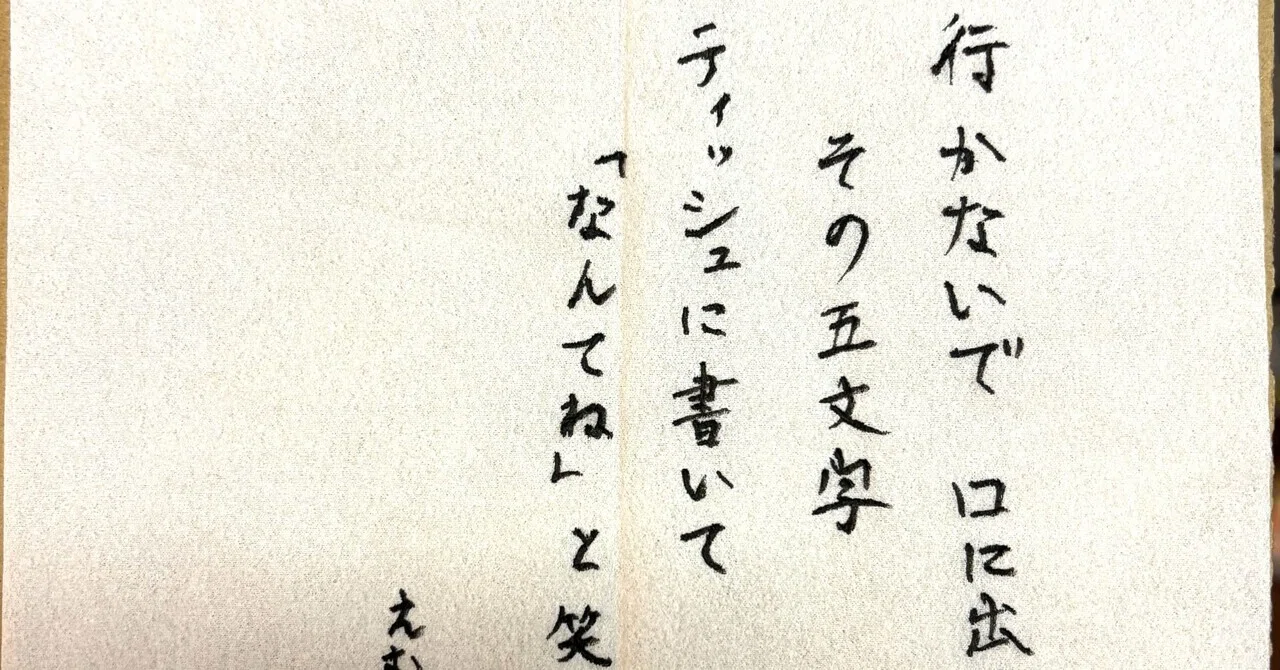 行かないで 口に出
その五文字
ティッシュに書いて
「なんてね」と笑
えむ